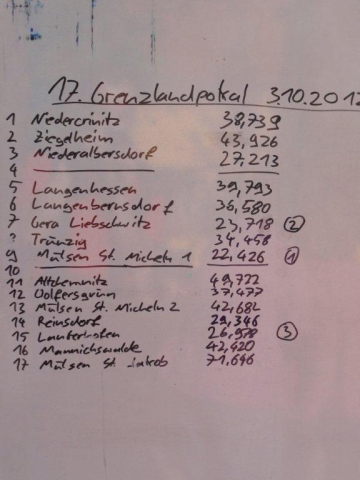 17. Grenzlandpokal 3.10.2012
1 Niedercrinitz 38,739
2 Ziegelheim 43,926
3 Niederalbersdorf 27,213
4
5 Langenhessen 39,793
6 Langenbernsdorf 36,580
7 Gera Liebschwitz 23,718 2
? Trünzig 34,458
9 Mülsen St. Micheln 1 22,426 1
10
11 Altchemnitz 49,722
12 Wolfersgrün 37,477
13 Mülsen St. Micheln 2 42,682
14 Reinsdorf 29,346
15 Lauterhofen 26,978 3
16 Mannichswalde 42,420
17 Mülsen St. Jakob 71,646